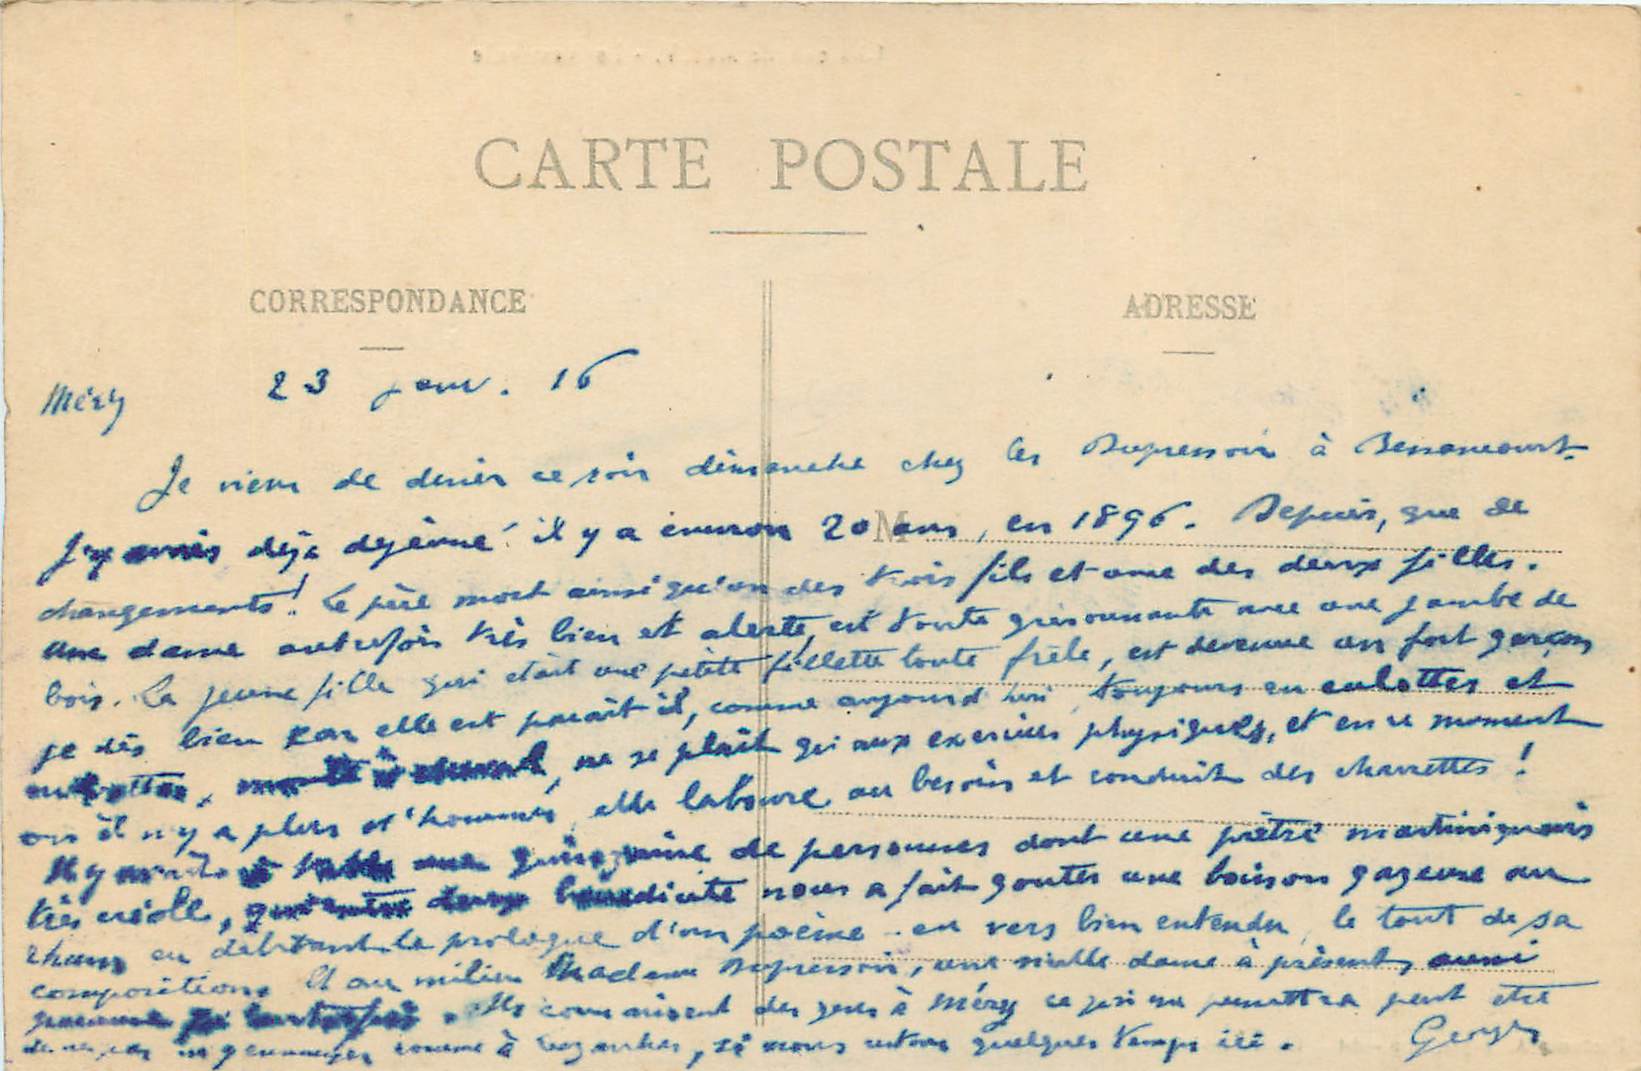 CARTE POSTALE
CORRESPONDANCE
ADRESSE
Méry 23 janv. 16
Je viens de diner ce soir dimanche chez les Dupressoir à Bessancourt.
J'y avais déjà déjeuné il y a environ 20 ans, en 1896. Depuis, que de
M
changements! Le père mort ainsi qu'un des trois fils et une des deux filles.
Une dame autrefois très bien et alerte, est toute grisonnante avec une jambe de
bois. La jeune fille qui était une petite fillette toute frêle, est devenue un fort garçon
je dis bien car elle est parait il, comme aujourd'hui toujours en culottes et
monte à cheval, ne se plait qu'aux exercices physiques, et en ce moment
où il n'y a plus d'hommes, elle laboure au besoin et conduit des charrettes!
Il y avait une quinzaine de personnes dont une prêtre martiniquais
très créole, qui entre deux bénédicité nous a fait gouter une boisson gazeuse au
en débitant le prologue d'un poème - en vers bien entendu, le tout de sa
composition. Et au milieu Madame Dupressoir, une vieille dame à présent, aussi
. Ils connaissent des gens à Méry ce qui me permettra peut etre
de ne pas comme à, si nous restons quelques temps ici.
Georges